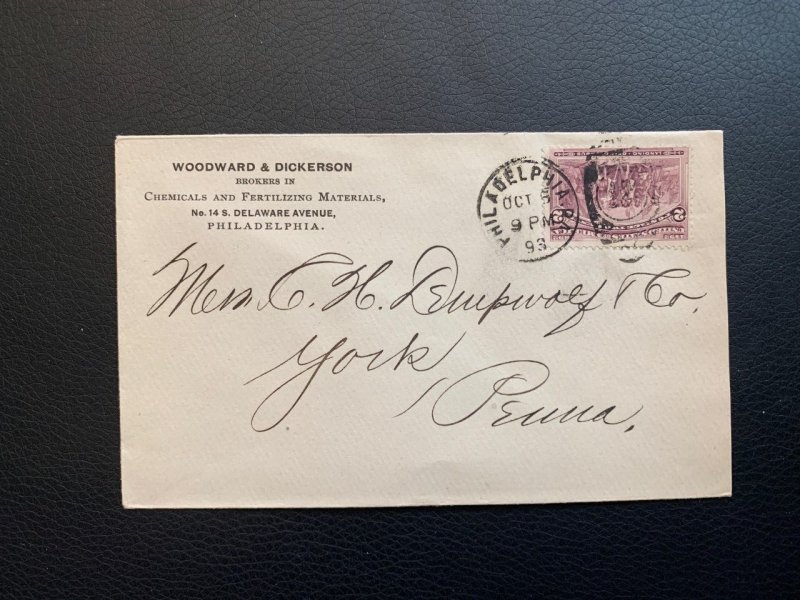 WOODWARD & DICKERSON
BROKERS IN
CHEMICALS AND FERTILIZING MATERIALS,
No. 14 S. DELAWARE AVENUE,
PHILADELPHIA.
PHILADELPHIA PA
OCT
9 PM
93
2
2
Mess. C. H. Dempwolf & Co.
York
Penna.